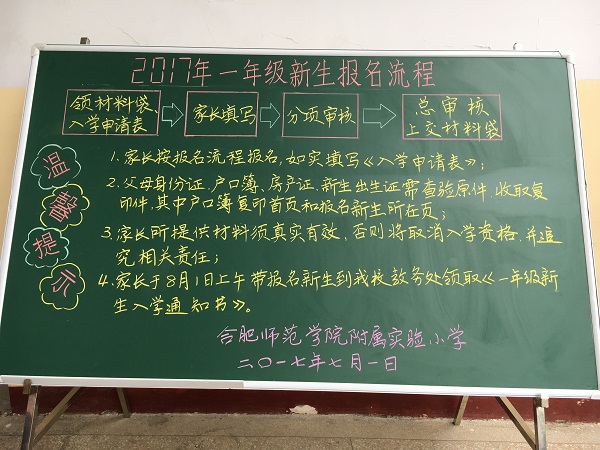 2017年一年级新生报名流程
领材料袋、入学申请表
家长填写
分项审核
总审核
上交材料袋
温馨提示
1.家长按报名流程报名,如实填写《入学申请表》;
2.父母身份证、户口簿、房产证、新生出生证需查验原件,收取复
印件,其中户口簿复印首页和报名新生所在页;
3.家长所提供材料须真实有效,否则将取消入学资格,并追
究相关责任;
4.家长于8月1日上午带报名新生到我校教务处领取《一年级新
生入学通知书》。
合肥师范学院附属实验小学
二〇一七年七月一日